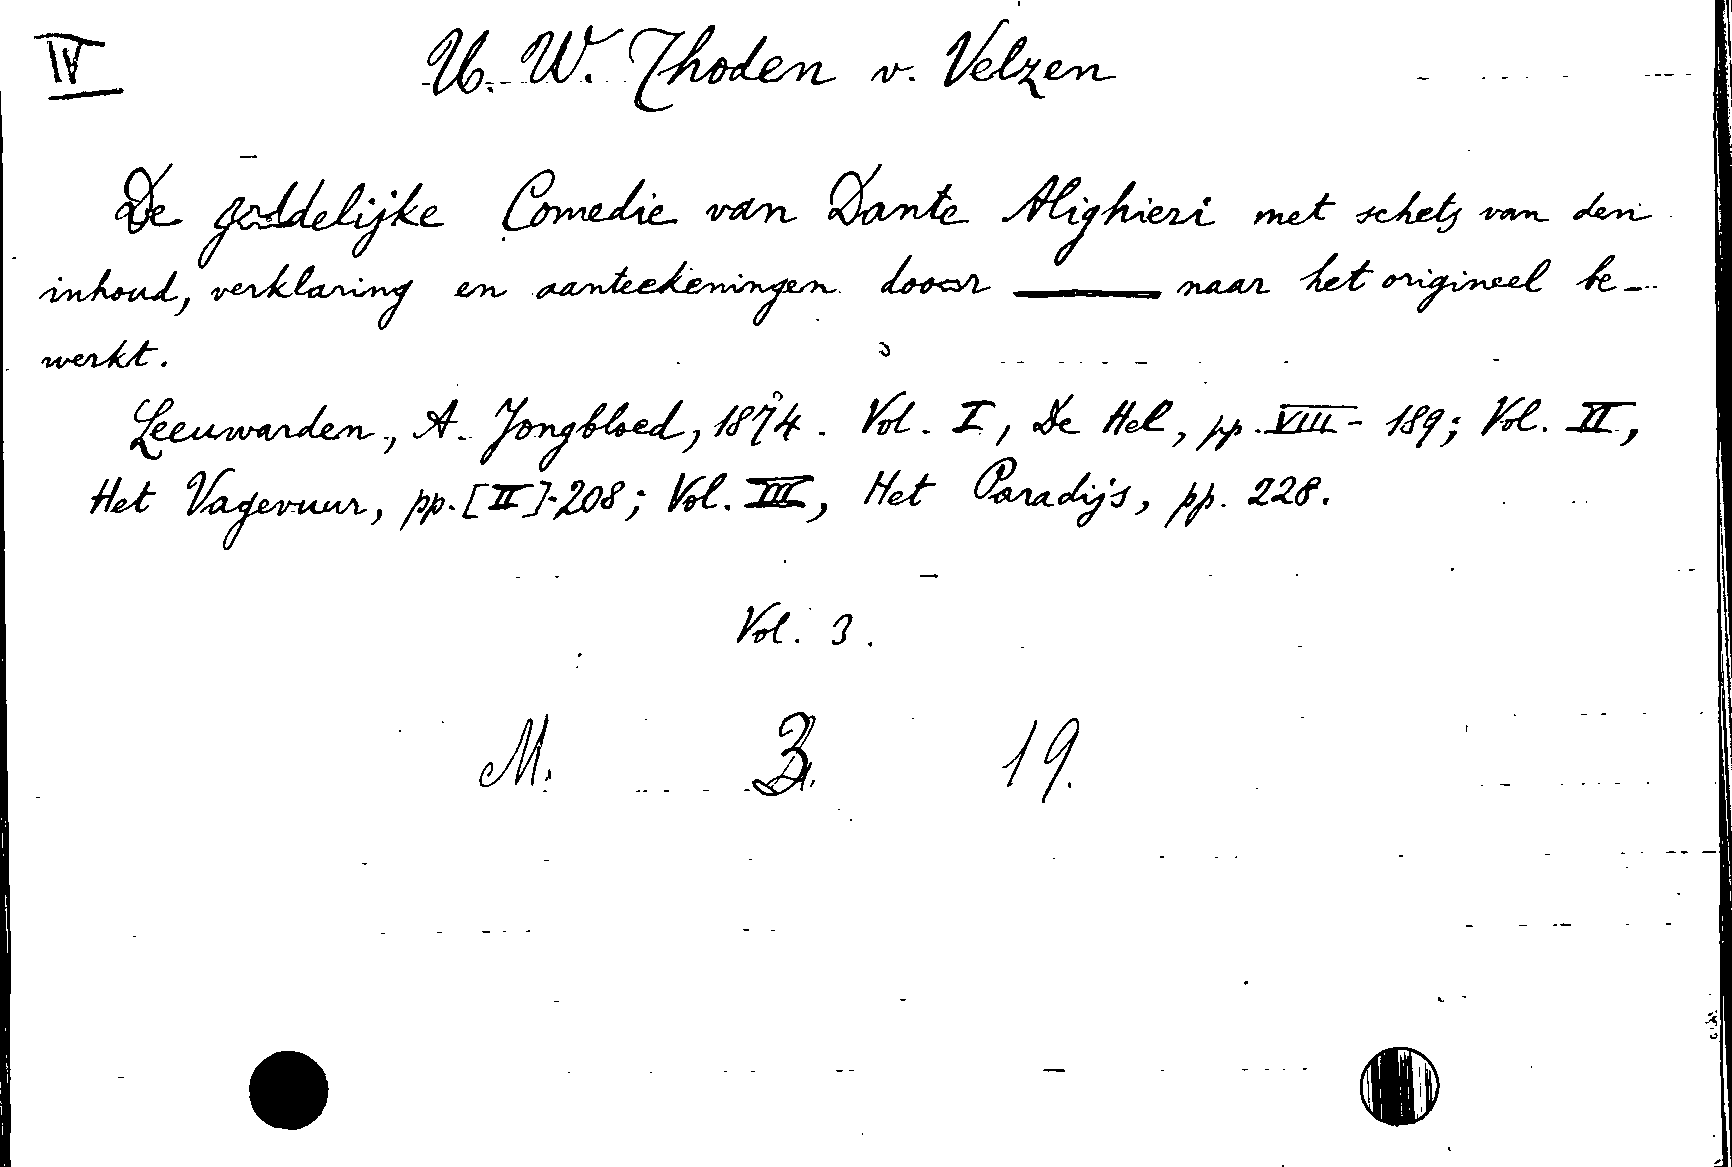 IV
U. W. Thoden v. Velzen
De goddelijke Comedie van Dante Alighieri met schets van den
inhoud, verklaring en aanteekeningen door —— naar het origineel be-
werkt.
Leeuwarden, A. Jongbloed, 1874. Vol. I, De Hel, pp. VIII - 189; Vol. II,
Het Vagevuur, pp. [II]-208; Vol. III, Het Paradijs, pp. 228.
Vol. 3.
M. 19.